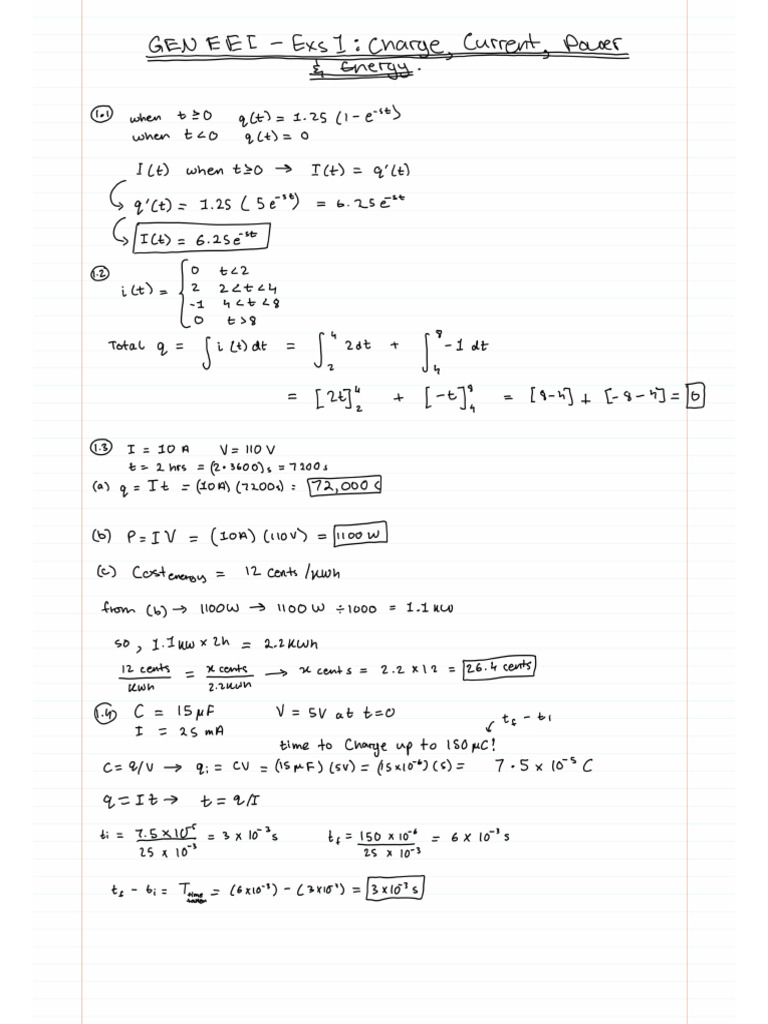 GEN EE I - Exs 1 : Charge, Current, Power
& Energy.
1.1 when t ≥ 0 q(t) = 1.25 (1 - e⁻⁵ᵗ)
when t < 0 q(t) = 0
I(t) when t ≥ 0 → I(t) = q'(t)
q'(t) = 1.25 ( 5e⁻⁵ᵗ) = 6.25e⁻⁵ᵗ
I(t) = 6.25e⁻⁵ᵗ
1.2 i(t) = { 0 t < 2
2 2 < t < 4
-1 4 < t < 8
0 t > 8
Total q = ∫ i (t) dt = ∫₂⁴ 2dt + ∫₄⁸ -1 dt
= [2t]₂⁴ + [-t]₄⁸ = [8-4] + [-8-4] = 0
1.3 I = 10 A V = 110 V
t = 2 hrs = (2·3600)s = 7200s
(a) q = It = (10A) (7200s) = 72,000 C
(b) P = IV = (10A) (110V) = 1100 W
(c) Cost energy = 12 cents /kWh
from (b) → 1100W → 1100 W ÷ 1000 = 1.1 kW
so, 1.1 kW × 2h = 2.2 kWh
12 cents / kWh = x cents / 2.2kWh → x cents = 2.2 × 12 = 26.4 cents
1.4 C = 15 μF V = 5V at t=0
I = 25 mA t_f - t_i
time to charge up to 150 μC!
C = q/V → q_i = CV = (15μF) (5V) = (15×10⁻⁶) (5) = 7.5 × 10⁻⁵ C
q = It → t = q/I
t_i = 7.5 × 10⁻⁵ / 25 × 10⁻³ = 3 × 10⁻³ s t_f = 150 × 10⁻⁶ / 25 × 10⁻³ = 6 × 10⁻³ s
t_f - t_i = T time taken = (6×10⁻³) - (3×10⁻³) = 3×10⁻³ s